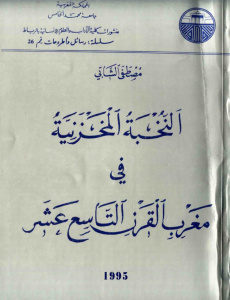 المملكة المغربية
جامعة محمد الخامس
منشورات كلية الآداب والعلوم الإنسانية بالرباط
سلسلة: رسائل وأطروحات رقم 26
مصطفى الشابي
النخبة المخزنية
في
مغرب القرن التاسع عشر
1995